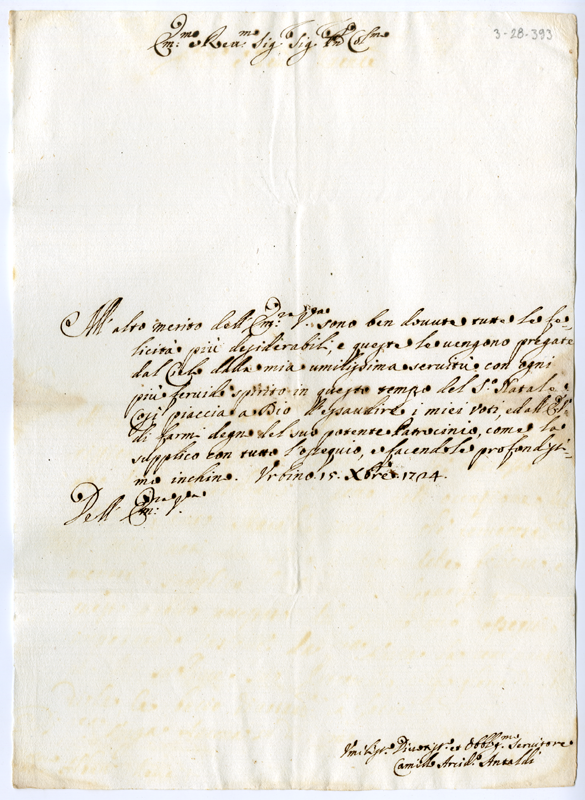 3-28-393
Em:mo e Reu:mo Sig:r Sig:r Pne Colmo
All' alto merito dell' Em:za Vra sono ben dovute tutte le fe-
licità più desiderabili, e queste le uengono pregate
dal Cielo dalla mia umilissima seruitù con ogni
più feruido spirito in questo tempo del S:o Natale
Così piaccia a Dio d'esaudire i miei voti, e dall' E.V.
di farmi degno del suo potente Patrocinio, come la
supplico con tutto l'ossequio, e facendole profondissi-
mo inchino. Vrbino 15. Xbre 1724.
Dell' Em:za Vra
Vmiliss:o Diuotiss:o et Obblig:mo Seruitore
Camillo Arcid:o Antaldi